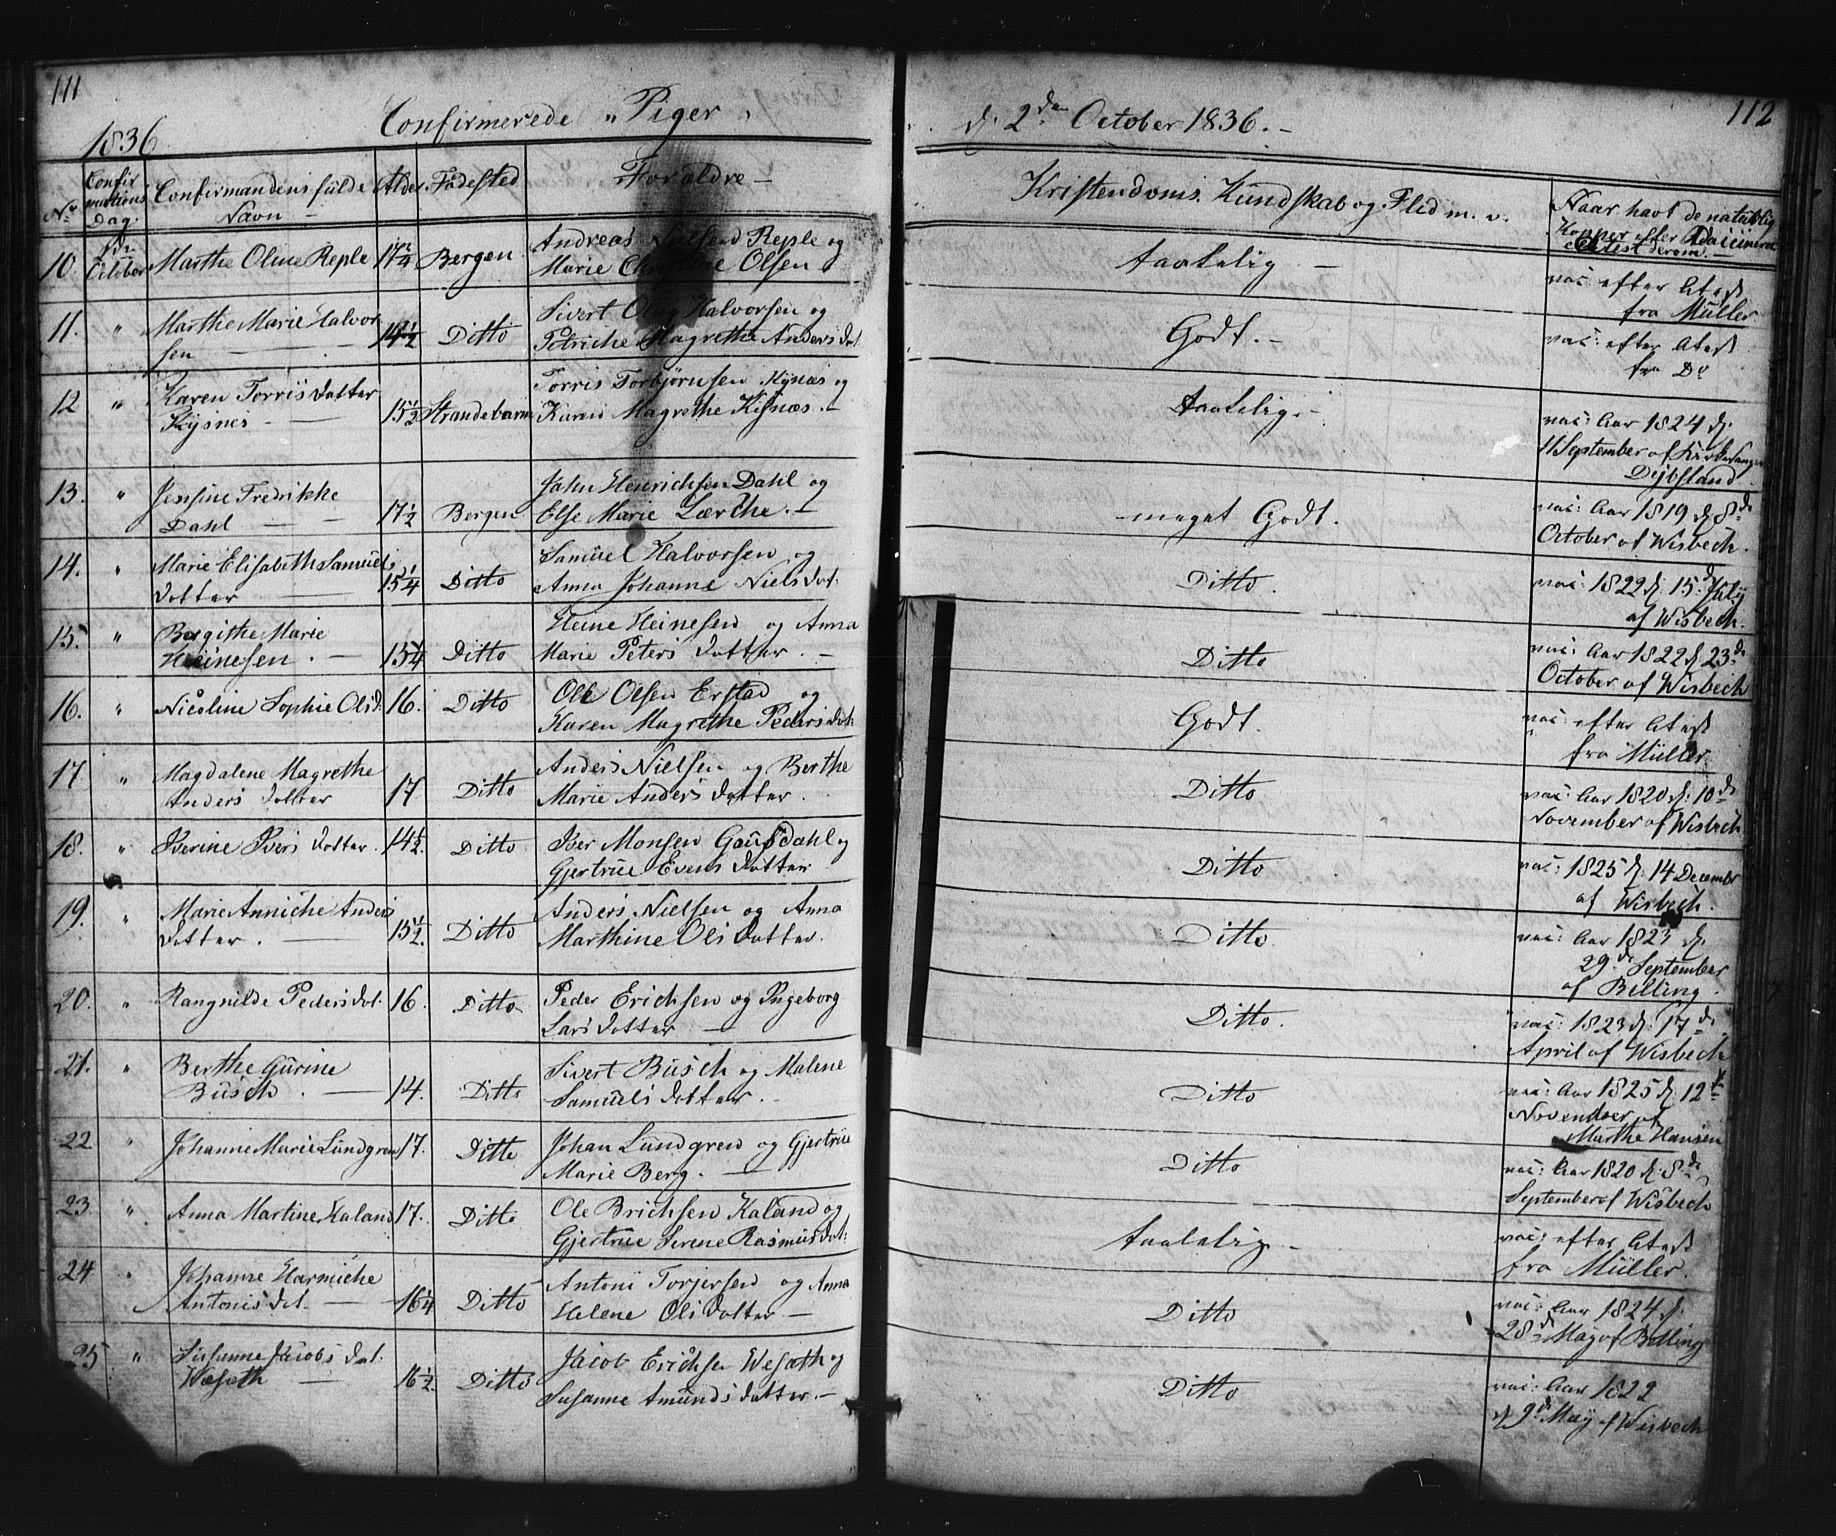 111
1836
Confirmerede „Piger„
d. 2den October 1836.-
112
No
Confirmations Dag.
Confirmandens fulde Navn -
Alder
Födested
Forældre -
Kristendoms. Kundskab og Flid m. v.
Naar havt de naturlig
Kopper eller Vaccineret
Attest derom. -
10.
2den October
Marthe Oline Reple
17¼
Bergen
Andreas Nielsen Reple og
Marie Christine Olsen
Taalelig -
vac: efter Atest
fra Müller.
11.
"
Marthe Marie Halvor
sen -
14½
Ditto
Sivert Olag Halvorsen og
Petriche Magrethe Anders Dat.
Godt. -
vac: efter Atest
fra Do
12
"
Karen Torris Datter
Kysnes -
15½
Strandebarm
Torris Torbjørnsen Kysnæs og
Karen Magrethe Kysnæs. -
Taalelig. -
vac: Aar 1824 d.
11 September af Kirkesanger
Dybsland.
13.
"
Jensine Fredrikke
Dahl -
17½
Bergen
Jahn Henrichsen Dahl og
Else Marie Lærche. -
meget Godt.
vac: Aar 1819 d. 8de
October af Wisbech.
14.
"
Marie Elisabeth Samuels
Datter -
15¼
Ditto
Samuel Halvorsen og
Anna Johanne Niels Dat.
Ditto.
vac: 1822 d. 15de July
af Wisbech.
15.
"
Bergithe Marie
Heinesen. -
15¼
Ditto
Heine Heinesen og Anna
Marie Peters Datter. -
Ditto
vac: Aar 1822 d. 23de
October af Wisbech
16.
"
Nicoline Sophie Ols D:
16.
Ditto
Ole Olsen Erstad og
Karen Magrethe Peders Dat:
Godt.
vac: efter Atest
fra Müller.
17.
"
Magdalene Magrethe
Anders Datter
17
Ditto
Anders Nielsen og Berthe
Marie Anders Datter.
Ditto
vac: Aar 1820 d: 10de
November af Wisbech.
18.
"
Iverine Ivers Datter.
14½.
Ditto
Iver Monsen Gausdahl og
Gjertrue Evens Datter
Ditto
vac: 1825 d. 14 December
af Wisbech.
19.
"
Marie Anniche Anders
Datter. -
15½.
Ditto
Anders Nielsen og Anna
Marthine Ols Datter.
Ditto
vac: Aar 1823 d.
29de September
af Billing.
20.
"
Rangnilde Peders Dat.
16.
Ditto
Peder Erichsen og Ingeborg
Lars Datter -
Ditto.
vac: 1823 d. 17de
April af Wisbech
21.
"
Berthe Gurine
Busch. -
14.
Ditto
Sivert Busch og Malene
Samuels Datter. -
Ditto
vac: Aar 1825 d. 12te
November af
Marthe Hansen
22
"
Johanne Marie Lundgren
17.
Ditto
Johan Lundgren og Gjertrue
Marie Berg. -
Ditto
vac: Aar 1820 d. 8de
September af Wisbech
23
"
Anna Martine Kaland
17.
Ditto
Ole Brichsen Kaland og
Gjertrue Serene Rasmus Dat:
Taalelig -
vac: efter Atest
fra Müller.
24
"
Johanne Harmiche
Antonis Dat. -
16¼
Ditto
Antoni Torjersen og Anna
Helene Ols Datter -
Ditto
vac: Aar 1824 d.
28de May af Billing
25
"
Susanne Jacobs Dat.
Wesæth -
16½
Ditto
Jacob Erichsen Wesæth og
Susanne Amunds Datter -
Ditto
vac: Aar 1822
d. 9de May af Wisbech